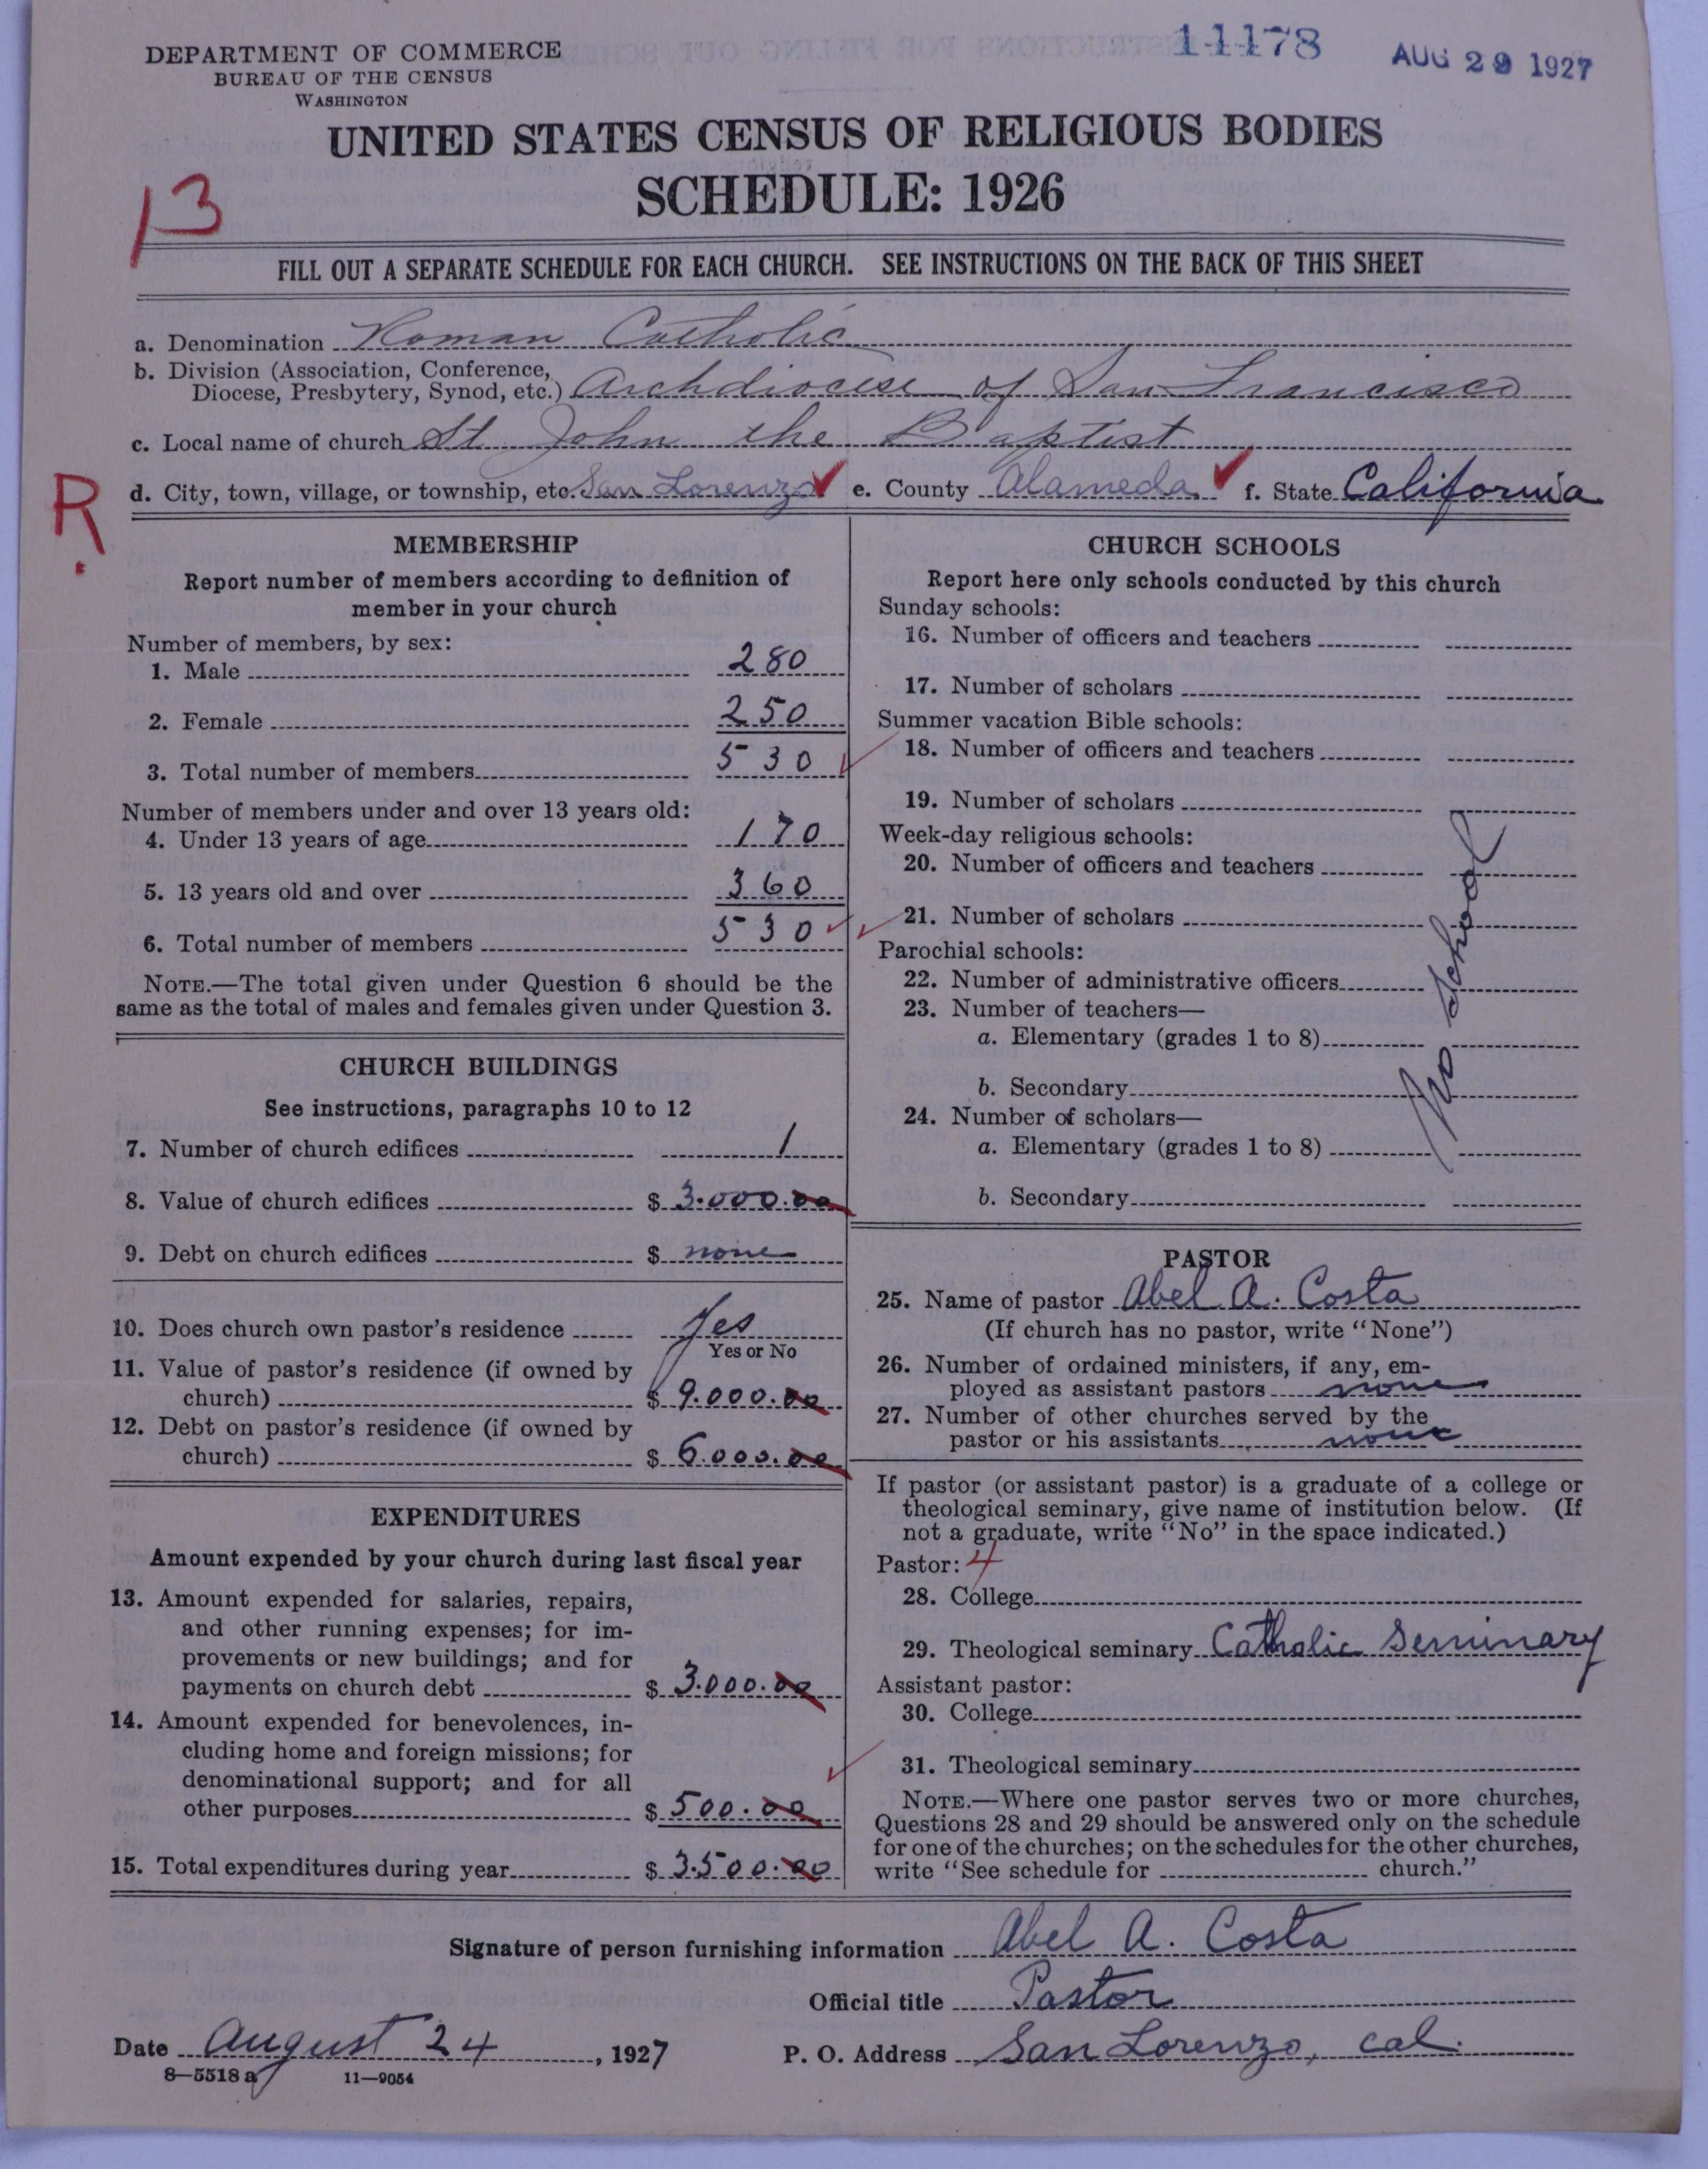 DEPARTMENT OF COMMERCE
BUREAU OF THE CENSUS
WASHINGTON
11178
AUG 29 1927
UNITED STATES CENSUS OF RELIGIOUS BODIES
SCHEDULE: 1926
13
FILL OUT A SEPARATE SCHEDULE FOR EACH CHURCH. SEE INSTRUCTIONS ON THE BACK OF THIS SHEET
a. Denomination Roman Catholic
b. Division (Association, Conference,
Diocese, Presbytery, Synod, etc.) Archdiocese of San Francisco
c. Local name of church St John the Baptist
R.
d. City, town, village, or township, etc. San Lorenzo e. County Alameda f. State California
MEMBERSHIP
Report number of members according to definition of
member in your church
Number of members, by sex:
1. Male 280
2. Female 250
3. Total number of members 530
Number of members under and over 13 years old:
4. Under 13 years of age 170
5. 13 years old and over 360
6. Total number of members 530
NOTE.—The total given under Question 6 should be the
same as the total of males and females given under Question 3.
CHURCH BUILDINGS
See instructions, paragraphs 10 to 12
7. Number of church edifices 1
8. Value of church edifices $ 3.000.00
9. Debt on church edifices $ none
10. Does church own pastor's residence Yes
Yes or No
11. Value of pastor's residence (if owned by
church) $ 9.000.00
12. Debt on pastor's residence (if owned by
church) $ 6.000.00
EXPENDITURES
Amount expended by your church during last fiscal year
13. Amount expended for salaries, repairs,
and other running expenses; for im-
provements or new buildings; and for
payments on church debt $ 3.000.00
14. Amount expended for benevolences, in-
cluding home and foreign missions; for
denominational support; and for all
other purposes $ 500.00
15. Total expenditures during year $ 3.500.00
CHURCH SCHOOLS
Report here only schools conducted by this church
Sunday schools:
16. Number of officers and teachers
17. Number of scholars
Summer vacation Bible schools:
18. Number of officers and teachers
19. Number of scholars
Week-day religious schools:
20. Number of officers and teachers
21. Number of scholars
Parochial schools:
22. Number of administrative officers
23. Number of teachers—
a. Elementary (grades 1 to 8)
b. Secondary
24. Number of scholars—
a. Elementary (grades 1 to 8)
b. Secondary
No School
PASTOR
25. Name of pastor Abel A. Costa
(If church has no pastor, write "None")
26. Number of ordained ministers, if any, em-
ployed as assistant pastors none
27. Number of other churches served by the
pastor or his assistants none
If pastor (or assistant pastor) is a graduate of a college or
theological seminary, give name of institution below. (If
not a graduate, write "No" in the space indicated.)
Pastor: 4
28. College
29. Theological seminary Catholic Seminary
Assistant pastor:
30. College
31. Theological seminary
NOTE.—Where one pastor serves two or more churches,
Questions 28 and 29 should be answered only on the schedule
for one of the churches; on the schedules for the other churches,
write "See schedule for church."
Signature of person furnishing information Abel A. Costa
Official title Pastor
Date August 24, 1927 P. O. Address San Lorenzo, Cal.
8—5518 a 11—9054